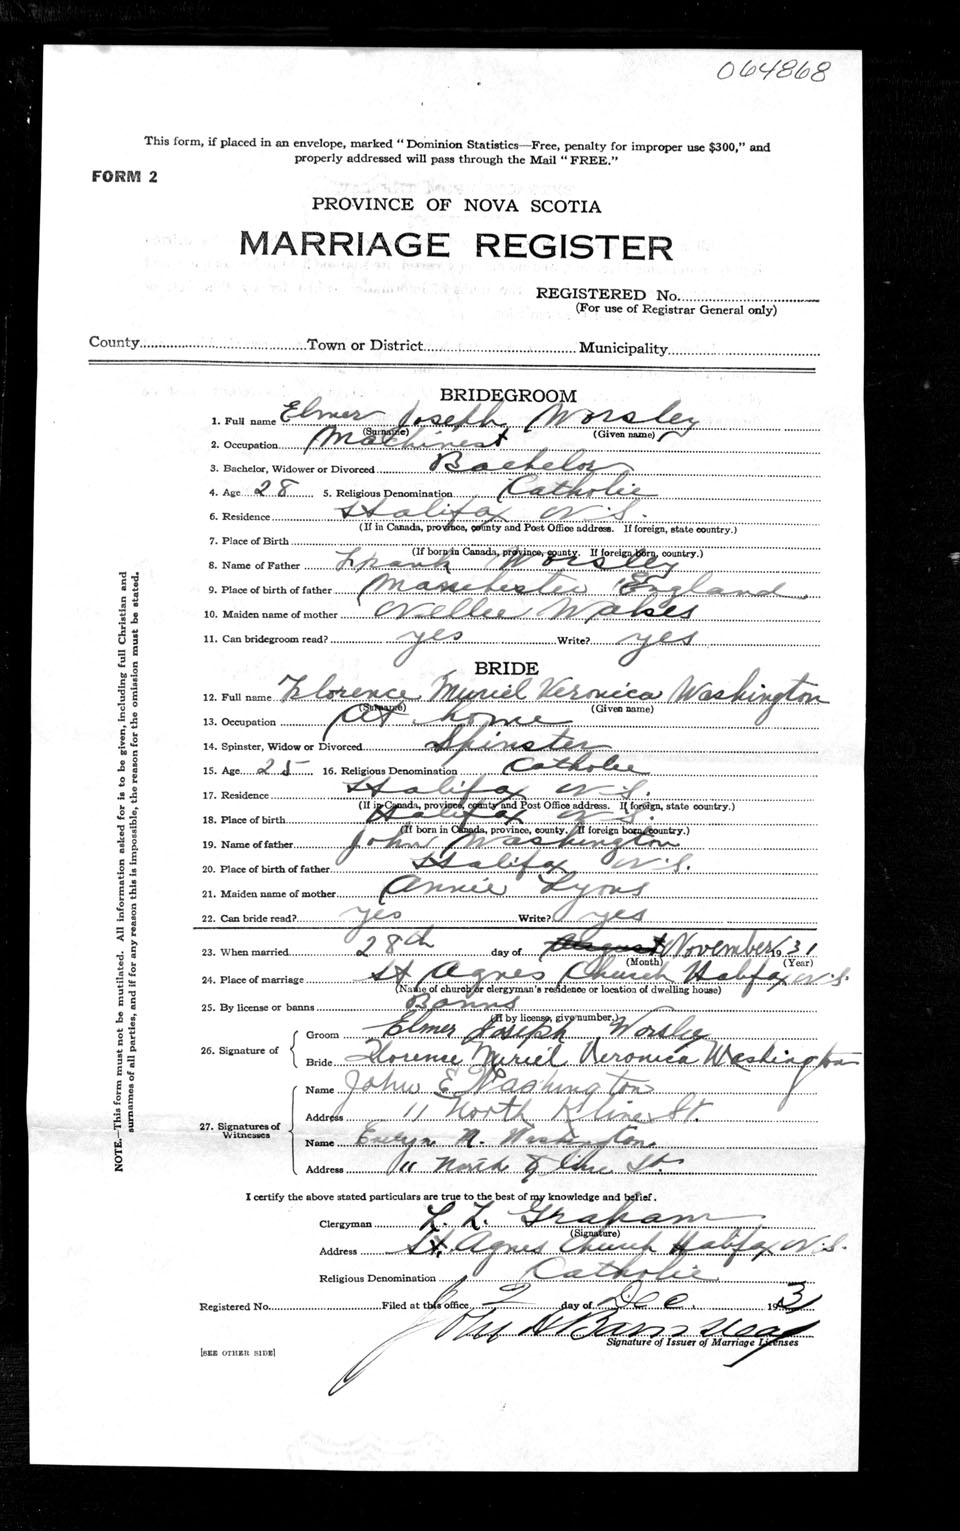 064868
This form, if placed in an envelope, marked "Dominion Statistics—Free, penalty for improper use $300," and
properly addressed will pass through the Mail "FREE."
FORM 2
PROVINCE OF NOVA SCOTIA
MARRIAGE REGISTER
REGISTERED No.
(For use of Registrar General only)
County Town or District Municipality
BRIDEGROOM
1. Full name Elmer Joseph Worsley
(Surname) (Given name)
2. Occupation Machinest
3. Bachelor, Widower or Divorced Bachelor
4. Age 28 5. Religious Denomination Catholic
6. Residence Halifax N.S.
(If in Canada, province, county and Post Office address. If foreign, state country.)
7. Place of Birth
(If born in Canada, province, county. If foreign born, country.)
8. Name of Father Frank Worsley
9. Place of birth of father Manchester England
10. Maiden name of mother Nellie Wakes
11. Can bridegroom read? yes Write? yes
BRIDE
12. Full name Florence Muriel Veronica Washington
(Surname) (Given name)
13. Occupation At home
14. Spinster, Widow or Divorced Spinster
15. Age 25 16. Religious Denomination Catholic
17. Residence Halifax N.S.
(If in Canada, province, county and Post Office address. If foreign, state country.)
18. Place of birth Halifax N.S.
(If born in Canada, province, county. If foreign born, country.)
19. Name of father John Washington
20. Place of birth of father Halifax N.S.
21. Maiden name of mother Annie Lyons
22. Can bride read? yes Write? yes
23. When married 28th day of August November 1931
(Month) (Year)
24. Place of marriage St Agnes Church Halifax N.S.
(Name of church or clergyman's residence or location of dwelling house)
25. By license or banns Banns
(If by license, give number.)
26. Signature of Groom Elmer Joseph Worsley
Bride Florence Muriel Veronica Washington
27. Signatures of Witnesses
Name John E Washington
Address 11 North Kline St.
Name Evelyn M. Washington
Address 11 North Kline St.
I certify the above stated particulars are true to the best of my knowledge and belief.
Clergyman Graham
(Signature)
Address St. Agnes Church Halifax N.S.
Religious Denomination Catholic
Registered No. Filed at this office 2 day of Dec. 1931
John
Signature of Issuer of Marriage Licenses
[SEE OTHER SIDE]
NOTE.—This form must not be mutilated. All information asked for is to be given, including full Christian and
surnames of all parties, and if for any reason this is impossible, the reason for the omission must be stated.